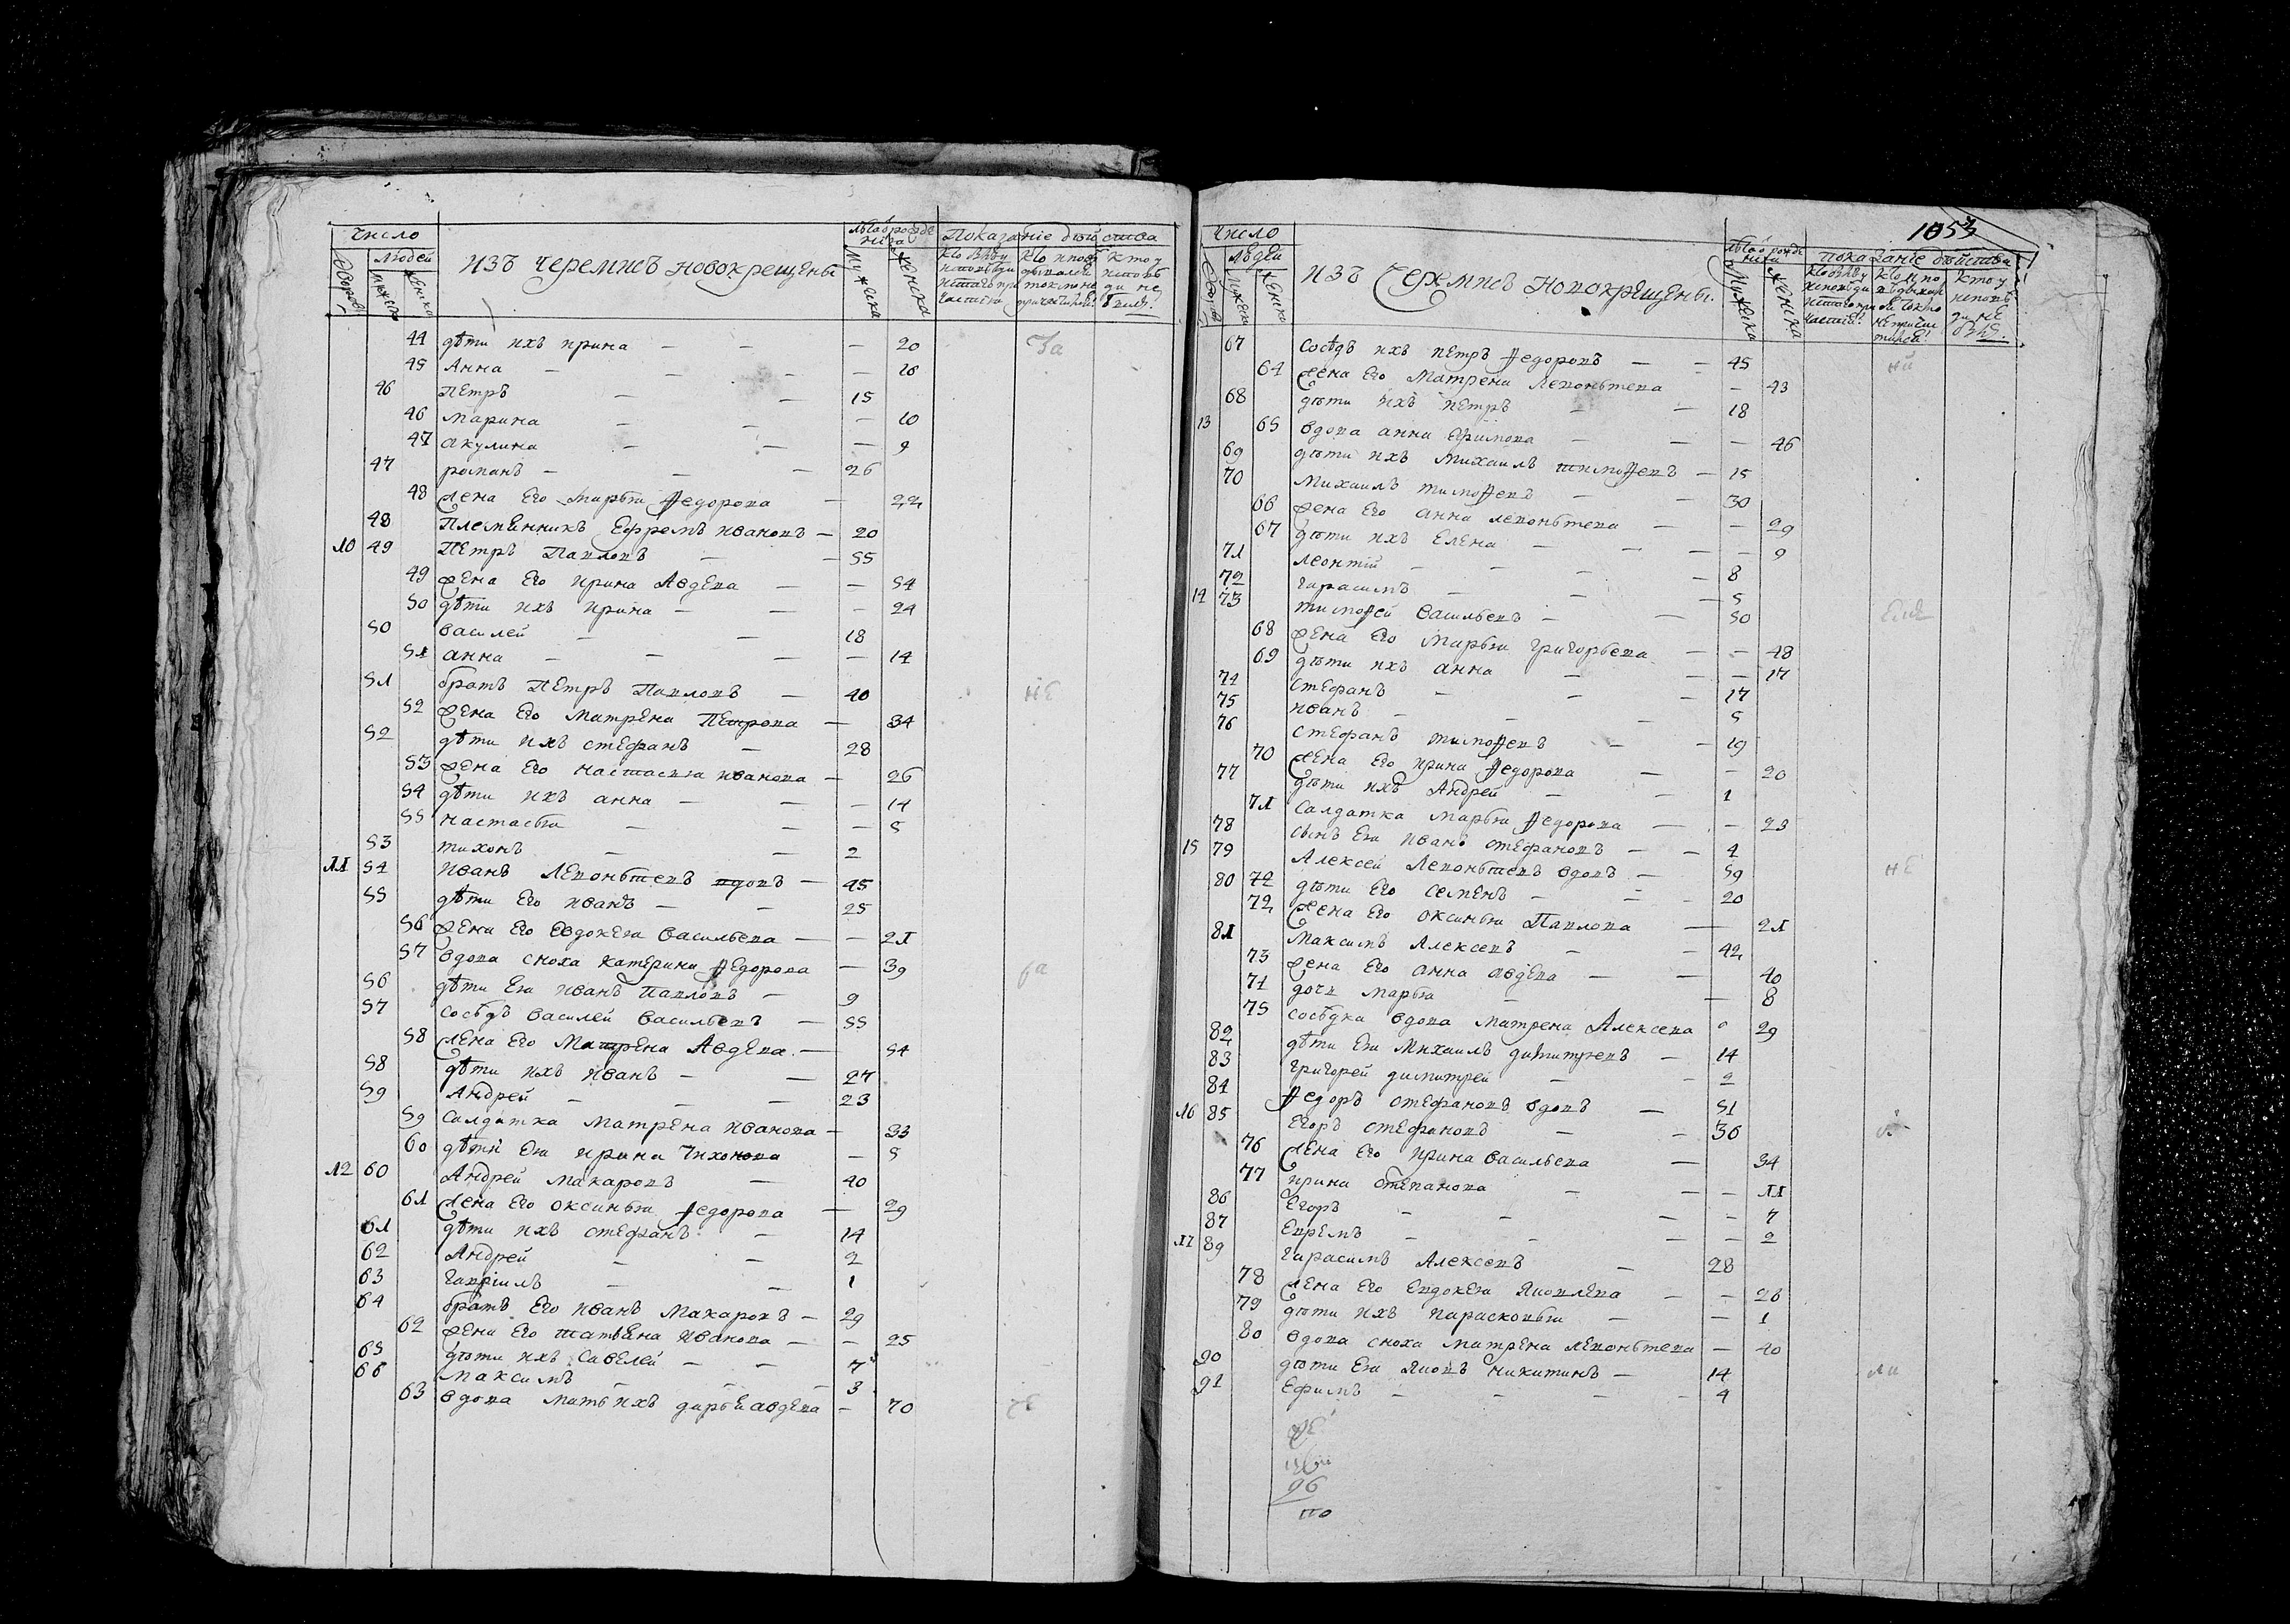 Число
Людей
Дворовъ
мужеска
женска
изъ черемисъ новокрещены
лѣта от рожде
нія
мужеска
женска
Показаніе дѣйства
44 дѣти ихъ ирина — — — 20
45 Анна — — — 16
46 Петръ — — 15
46 Марина — — — 10
47 акулина — — — 9
47 романъ — — — 26
48 жена Его Марья Ѳедорова — 22
48 Племянникъ Ефремъ ивановъ — 20
10 49 Петръ Павловъ — — 55
49 жена Его ирина Авдѣева — — 54
50 дѣти ихъ ирина — — — 24
50 василей — — 18
51 анна — — — — 14
51 братъ Петръ Павловъ — 40
не
52 жена Его Матрена Петрова — 34
52 дѣти ихъ стефанъ — 28
53 жена Его настасья иванова — 26
54 дѣти ихъ анна — — — 14
55 настасья — — — 5
53 тихонъ — — 2
11 54 иванъ Леонтьевъ вдовъ — 45
55 дѣти Его иванъ — — 25
56 жена Его Евдокея васильева — — 21
57 вдова сноха катерина Ѳедорова — 39
56 дѣти Ея иванъ Павловъ — 9
57 сосѣдъ василей васильевъ — 55
58 жена Его Матрена Авдѣева — 54
58 дѣти ихъ иванъ — — 27
59 Андрей — — — 23
59 салдатка матрена иванова — 33
60 дѣти Ея ирина Тихонова — 5
12 60 Андрей макаровъ — 40
61 жена Его оксинья Ѳедорова — 29
61 дѣти ихъ стефанъ — 14
62 Андрей — — 2
63 гавріилъ — — 1
64 братъ Его иванъ Макаровъ — 29
62 жена Его татьяна иванова — — 25
65 дѣти ихъ савелей — — 7
66 максимъ — — — 3
63 вдова мать ихъ дарья авдѣева — 70
1053
Число
людей
Дворовъ
мужеска
женска
изъ Черемисъ новокрещены.
лѣта от рожде
нія
Мужеска
женска
показаніе дѣйства
67 сосѣдъ ихъ петръ Ѳедоровъ — — 45
64 жена Его Матрена Леонтьева — 43
68 дѣти ихъ петръ — — 18
13 65 вдова анна Ефимова — — — 46
69 дѣти ихъ михаилъ тимоѲеевъ — 15
70 Михаилъ тимоѲеевъ — — 30
66 жена Его анна леонтьева — — 29
67 дѣти ихъ Елена — — — — 9
71 леонтій — — — — 8
72 гарасимъ — — — 5
14 73 тимоѲей васильевъ — — 50
68 жена Его Марья григорьева — — 48
69 дѣти ихъ анна — — — 17
74 стефанъ — — — 17
75 иванъ — — — 5
76 стефанъ тимоѲеевъ — — 19
70 жена Его ирина Ѳедорова — — 20
77 дѣти ихъ Андрей — — 1
71 салдатка марья Ѳедорова — — 23
78 сынъ Ея иванъ стефановъ — — 4
15 79 Алексей Леонтьевъ вдовъ — 59
не
80 72 дѣти Его семенъ — — — 20
72 жена Его оксинья Павлова — 21
81 максимъ Алексеевъ — — 42
73 жена Его анна авдѣева — — 40
74 дочь марья — — 8
75 сосѣдка вдова матрена Алексеева 29
82 дѣти Ея михаилъ димитреевъ — 14
83 григорей димитрей — — 2
84 Ѳедоръ стефановъ вдовъ — 51
16 85 Егоръ стефановъ — — 36
76 жена Его ирина васильева — 34
77 ирина степанова — — — 11
86 Егоръ — — — — 7
87 Ефремъ — — — — 2
17 89 гарасимъ Алексеевъ — 28
78 жена Его Евдокея Яковлева — — 26
79 дѣти ихъ парасковья — — 1
80 вдова сноха матрена леонтьева — 40
90 дѣти Ея Яковъ никитинъ — 14
91 Ефимъ — — — — 4
96